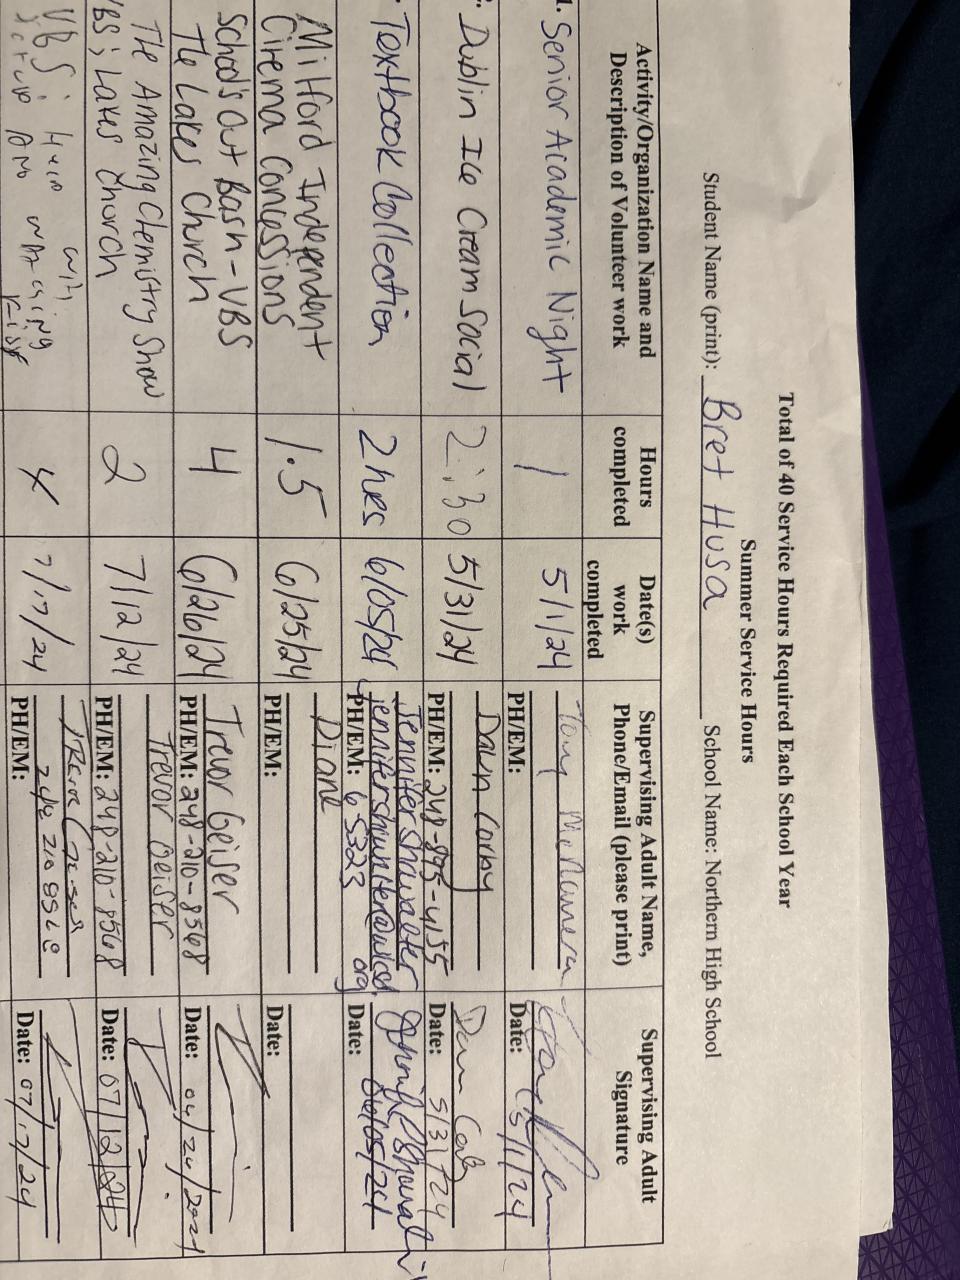 Total of 40 Service Hours Required Each School Year
Summer Service Hours
Student Name (print): Bret Husa School Name: Northern High School
Activity/Organization Name and Description of Volunteer work
Hours completed
Date(s) work completed
Supervising Adult Name, Phone/Email (please print)
Supervising Adult Signature
1. Senior Academic Night
1
5/1/24
Tony McNamera
PH/EM:
Date: 5/1/24
Dublin Ice Cream Social
2:30
5/31/24
Dawn Corby
PH/EM: 248-895-4155
Date: 5/31/24
Textbook Collection
2 hrs
6/05/24
Jennifer Showalter
PH/EM:
Date: 06/05/24
Milford Independent
Cinema Concessions
1.5
6/25/24
Diane
PH/EM:
Date:
School's Out Bash - VBS
The Lakes Church
4
6/26/24
Trevor Geiser
PH/EM: 248-210-8568
Date:
The Amazing Chemistry Show
VBS; Lakes Church
2
7/12/24
Trevor Geiser
PH/EM: 248-210-8568
Date: 07/12/24
VBS: Help with
Setup and watching
4
7/17/24
PH/EM:
Date: 07/17/24